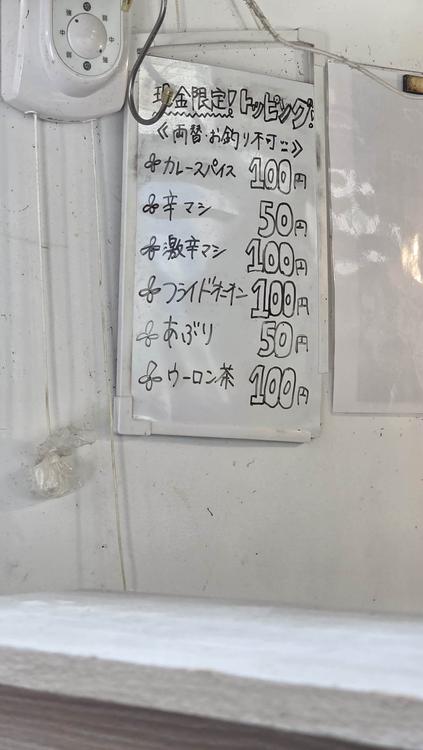 現金限定!トッピング!
《両替・お釣り不可》
カレースパイス 100円
辛マシ 50円
激辛マシ 100円
フライドオニオン 100円
あぶり 50円
ウーロン茶 100円